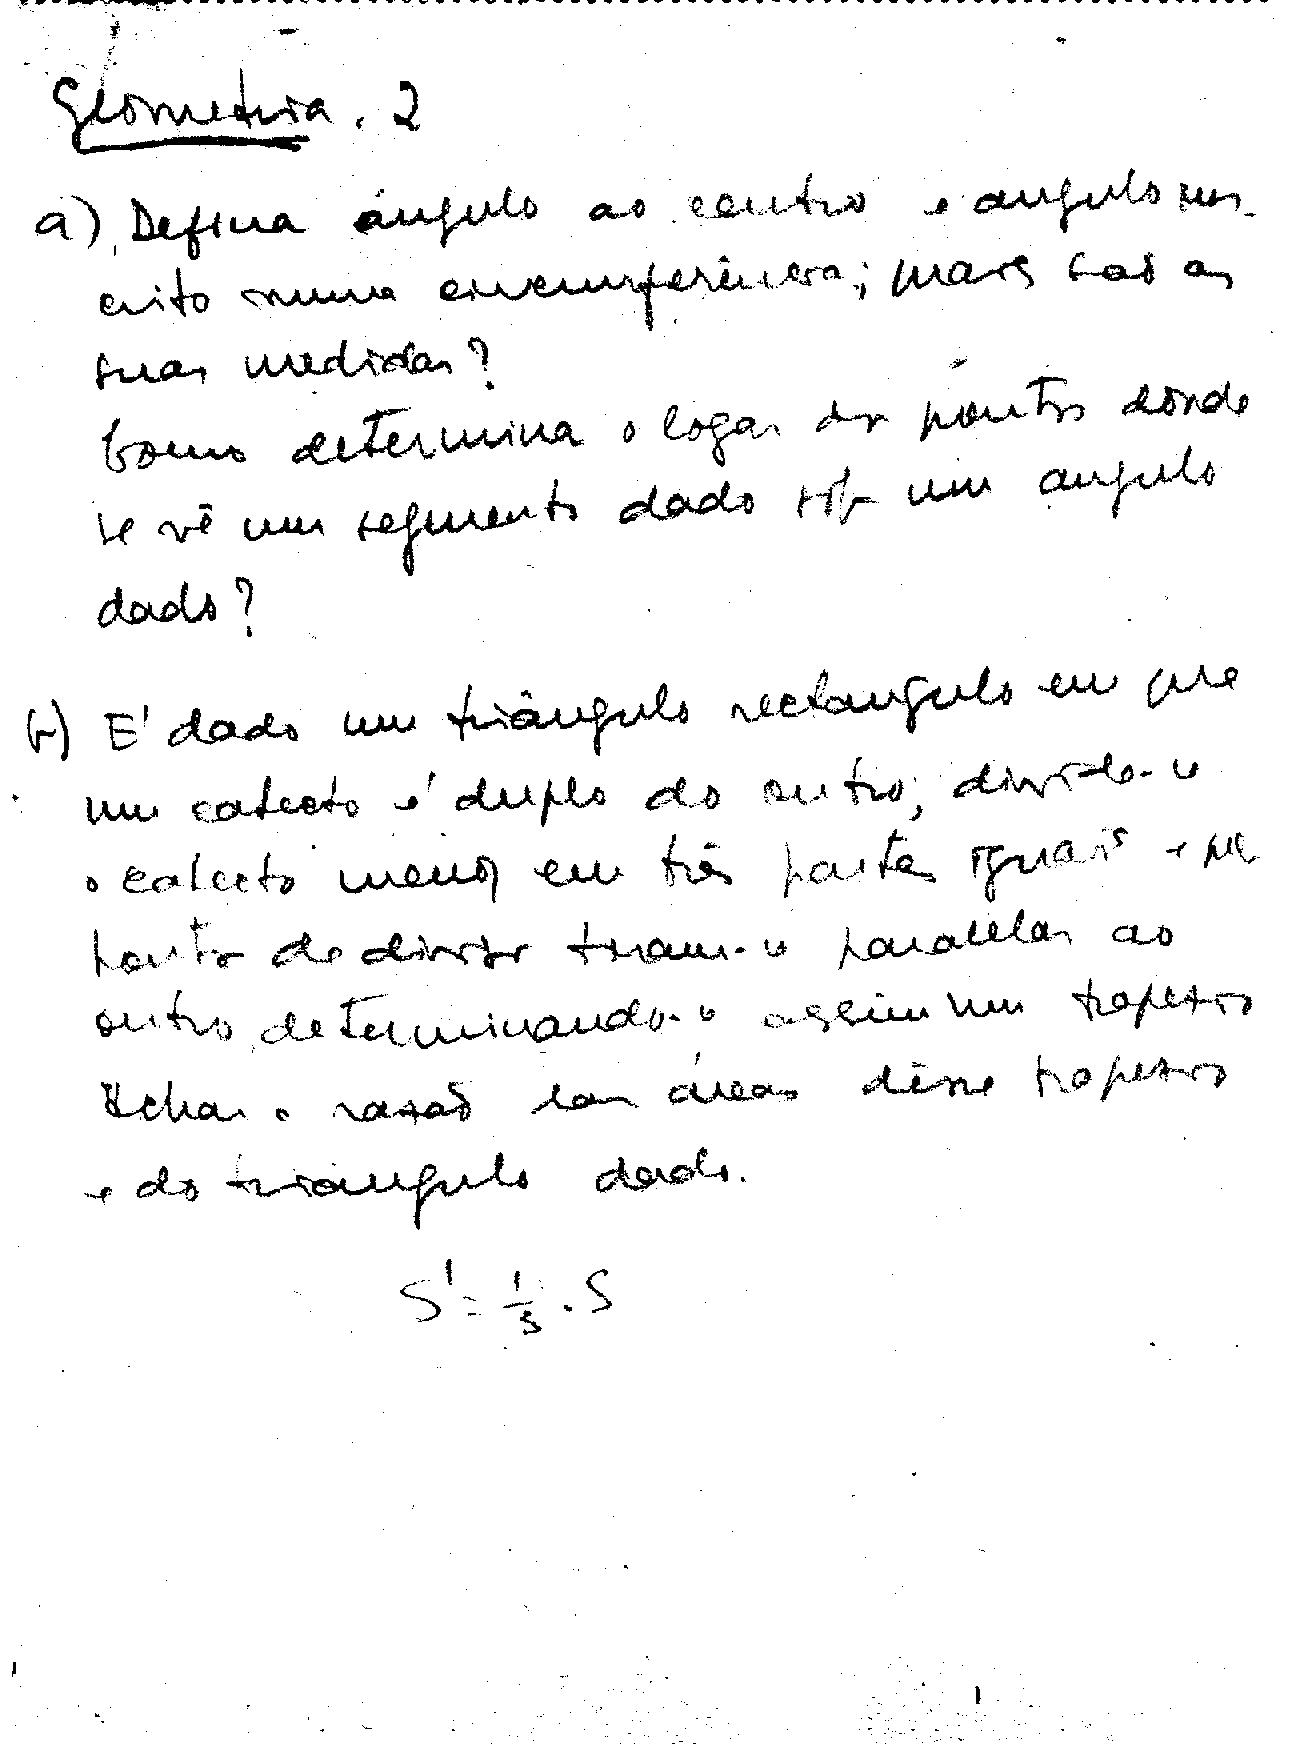 Geometria. 2
a) Defina ângulo ao centro e angulo ins-
crito numa circumferência; quais são as
suas medidas?
Como determina o logar dos pontos donde
se vê um segmento dado sob um angulo
dado?
b) E' dado um triângulo rectangulo em que
um catecto é duplo do outro; divide-se
o catecto menor em três partes iguais e pelos
pontos de divisão tiram-se paralelas ao
outro, determinando-se assim um trapesio
Achar a razão das áreas dêsse trapesio
e do triangulo dado.
S' = 1/3 . S